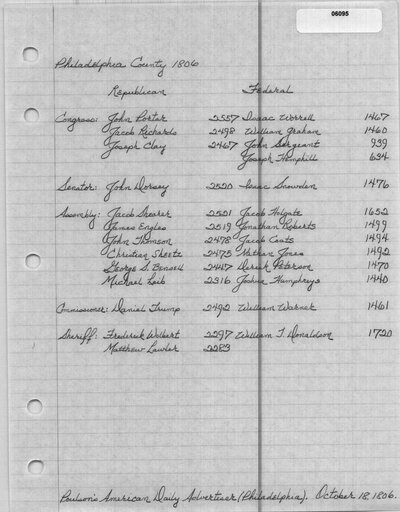 06095
Philadelphia County 1806
Republican Federal
Congress: John Porter 2557 Isaac Worrell 1467
Jacob Richards 2498 William Graham 1460
Joseph Clay 2467 John Sergeant 939
Joseph Hemphill 634
Senator: John Dorsey 2520 Isaac Snowden 1476
Assembly: Jacob Shearer 2501 Jacob Holgate 1652
James Engles 2519 Jonathan Roberts 1499
John Thomson 2478 Jacob Coats 1494
Christian Sheetz 2475 Nathan Jones 1492
George G. Bensell 2447 Derick Peterson 1470
Michael Leib 2316 Joshua Humphreys 1440
Commissioner: Daniel Trump 2492 William Warner 1461
Sheriff: Frederick Wolbert 2297 William T. Donaldson 1720
Matthew Lawler 2283
Poulson's American Daily Advertiser (Philadelphia). October 18, 1806.